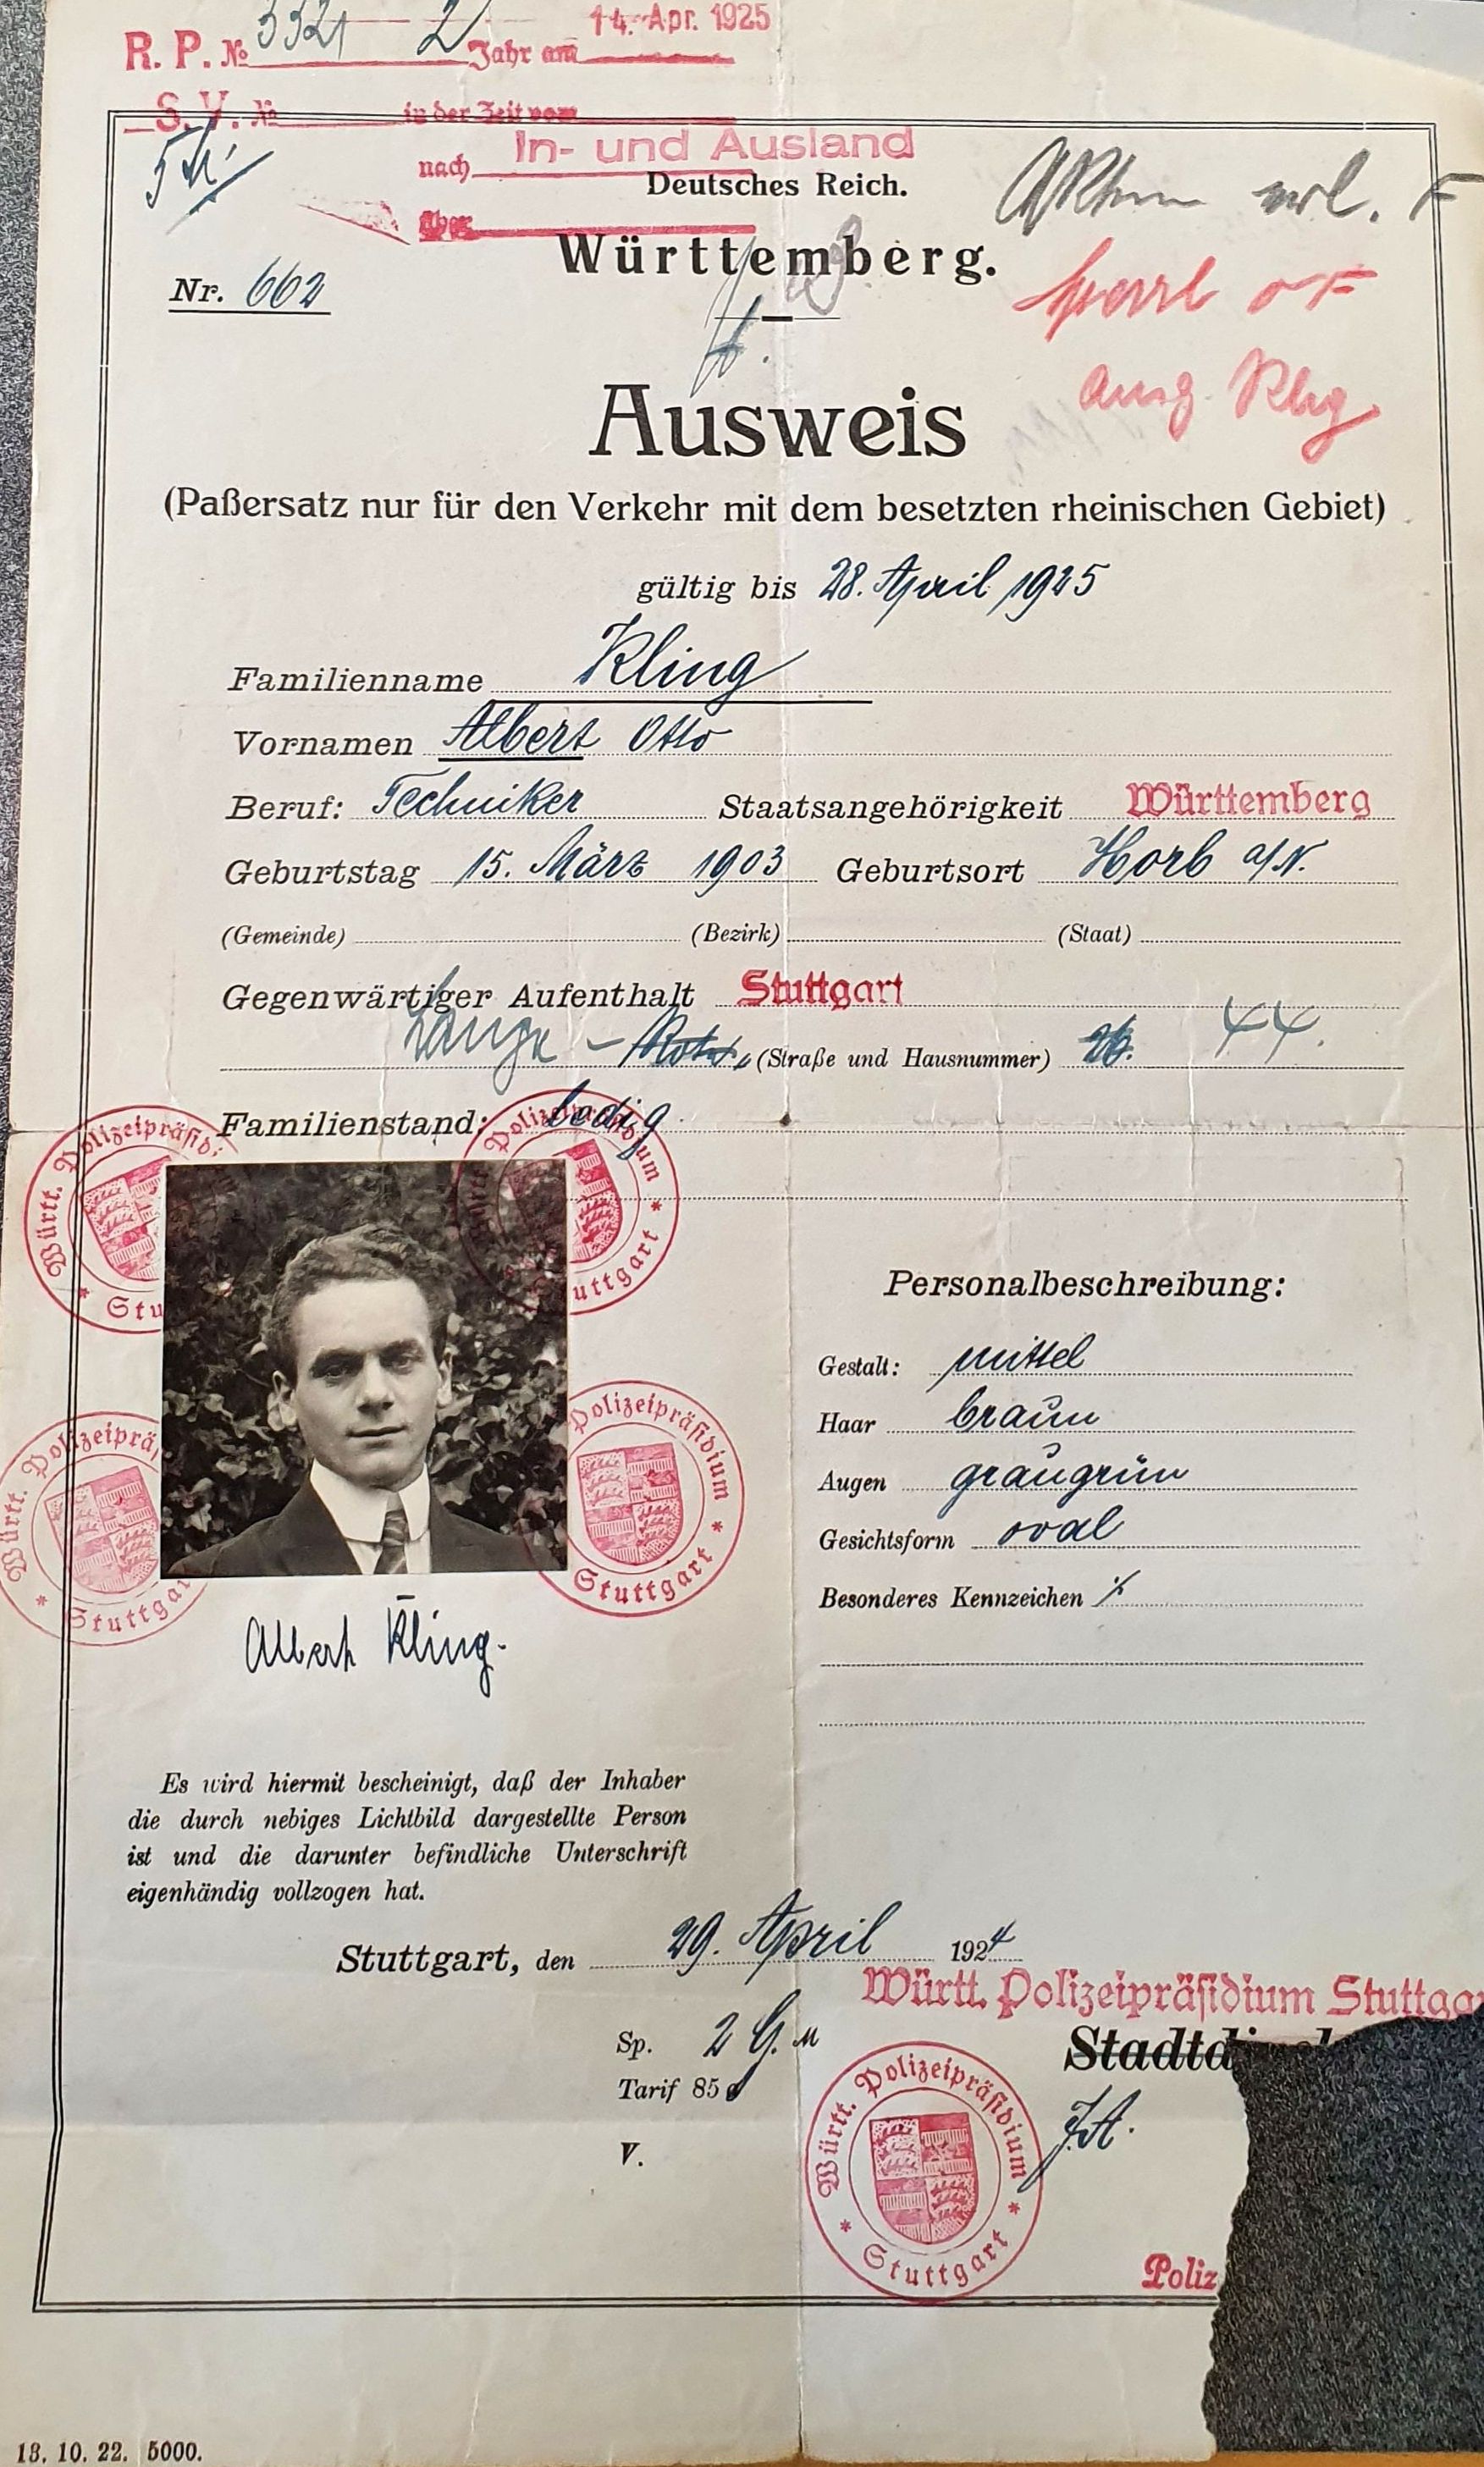 R. P. № 3321 2 Jahr am 14. Apr. 1925
S. V. № in der Zeit vom
nach In- und Ausland
Deutsches Reich.
über
Württemberg.
Nr. 662
Ausweis
(Paßersatz nur für den Verkehr mit dem besetzten rheinischen Gebiet)
gültig bis 28. April 1925
Familienname Kling
Vornamen Albert Otto
Beruf: Techniker Staatsangehörigkeit Württemberg
Geburtstag 15. März 1903 Geburtsort Horb a/N.
(Gemeinde) (Bezirk) (Staat)
Gegenwärtiger Aufenthalt Stuttgart
Lange - (Straße und Hausnummer) 26. 44.
Familienstand: ledig
Württ. Polizeipräsidi
Stu
Württ. Polizeipräsidium
Stuttgart
Personalbeschreibung:
Gestalt: mittel
Haar braun
Augen graugrün
Gesichtsform oval
Besonderes Kennzeichen ./.
Württ. Polizeiprä
Stuttgar
Polizeipräsidium
Stuttgart
Albert Kling.
Es wird hiermit bescheinigt, daß der Inhaber
die durch nebiges Lichtbild dargestellte Person
ist und die darunter befindliche Unterschrift
eigenhändig vollzogen hat.
Stuttgart, den 29. April 1924
Württ. Polizeipräsidium Stuttga
Sp. 2 G.M
Stadtd
Tarif 85
J.A.
V.
Württ. Polizeipräsidium
Stuttgart
Poliz
13. 10. 22. 5000.